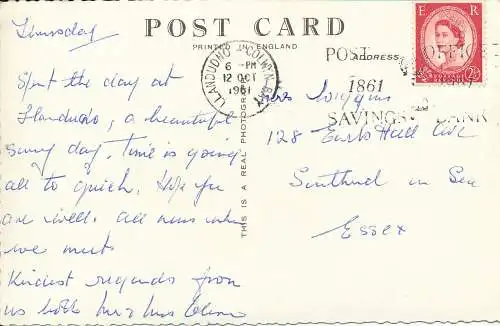 POST CARD
PRINTED IN ENGLAND
Thursday
Spent the day at
Llandudno, a beautiful
sunny day. Time is going
all to quick. Hope you
are well. All news when
we meet
Kindest regards from
us both Mr & Mrs
THIS IS A REAL PHOTOGR
LLANDUDNO COLWYN BAY
6 - PM
12 OCT
1961
POST OFFICE
ADDRESS
1861
SAVINGS BANK
E R
2½
Mrs Wiggins
128 Earls Hall Ave
Southend on Sea
Essex